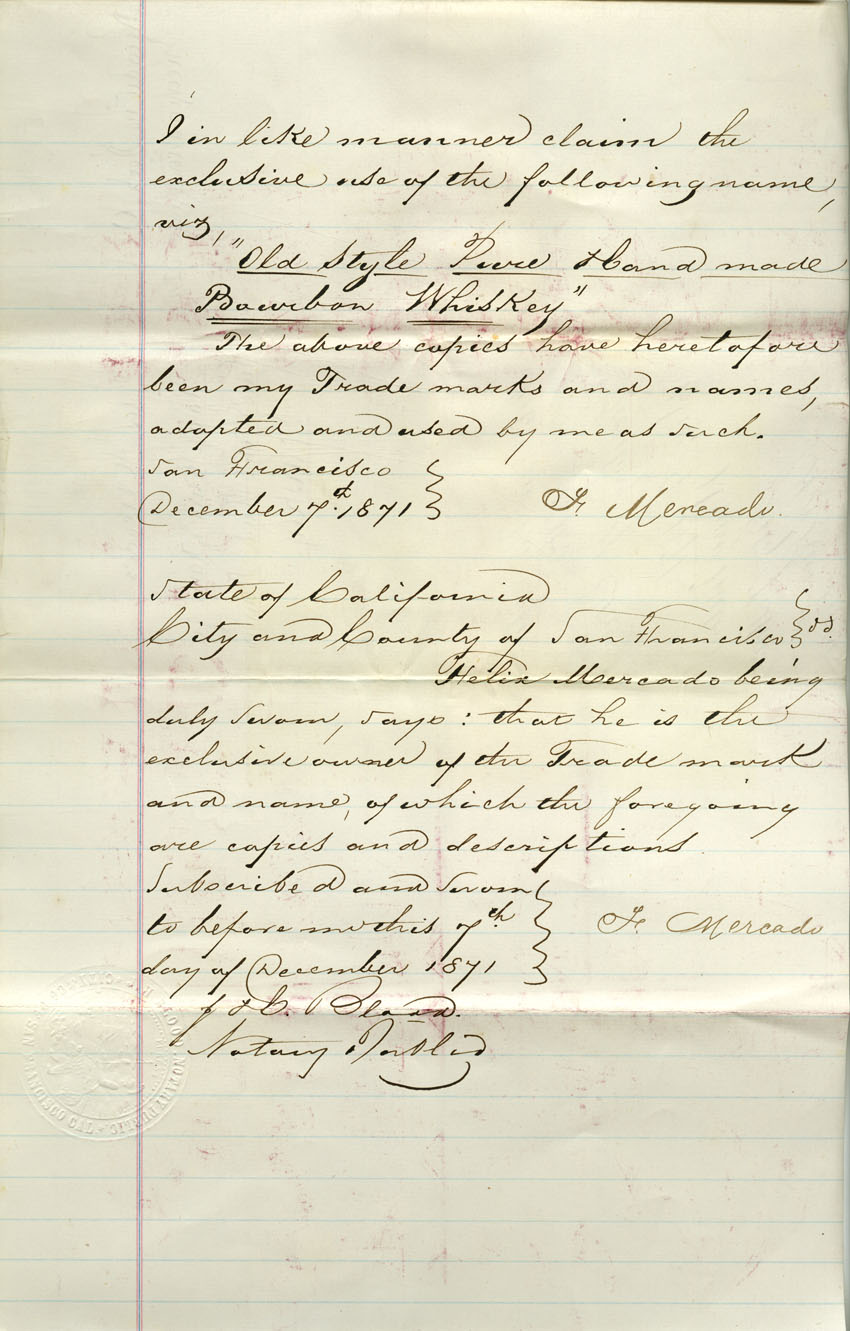 I in like manner claim the
exclusive use of the following name,
viz,
"Old Style Pure Hand made
Bourbon Whiskey"
The above copies have heretofore
been my Trade marks and names,
adopted and used by me as such.
San Francisco
December 7th. 1871
F. Mercado.
State of California
City and County of San Francisco ss.
Felix Mercado being
duly sworn, says: that he is the
exclusive owner of the Trade mark
and name, of which the foregoing
are copies and descriptions
Subscribed and sworn
to before me this 7th.
day of December 1871
F. Mercado
Notary Public